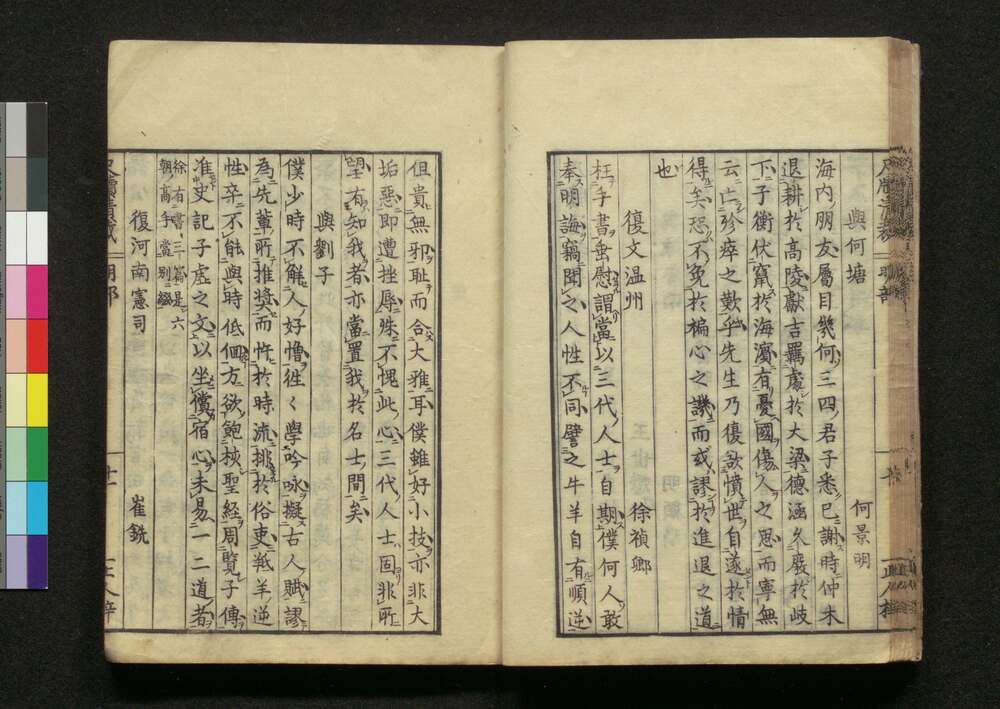 與何塘 何景明
海内朋友屬目幾何三四君子悉已謝時仲木
退耕於高陵獻吉羈處於大梁德涵久廢於岐
下子衡伏竄於海濱有憂國傷人之思而寧無
云亡殄瘁之歎乎先生乃復欲憤世自遂於情
得矣恐不免於褊心之譏而或謬於進退之道
也
復文温州 徐禎卿
枉手書垂慰謂當以三代人士自期僕何人敢
奉明誨竊聞之人性不同譬之牛羊自有順逆
但貴無邪耻而合大雅耳僕雖好小技亦非大
垢惡即遭挫辱殊不愧此心三代人士固非所
望有知我者亦當置我於名士間矣
與劉子
僕少時不解人好憎往々學吟咏擬古人賦謬
為先輩所推獎而忤於時流排於俗吏羝羊逆
性卒不能與時低佪方欲飽核聖經周覽子傳
准史記子虛之文以坐償宿心未易一二道者
徐有書三篇是六
朝高手當別綴
復河南憲司 崔銑
明部
十一